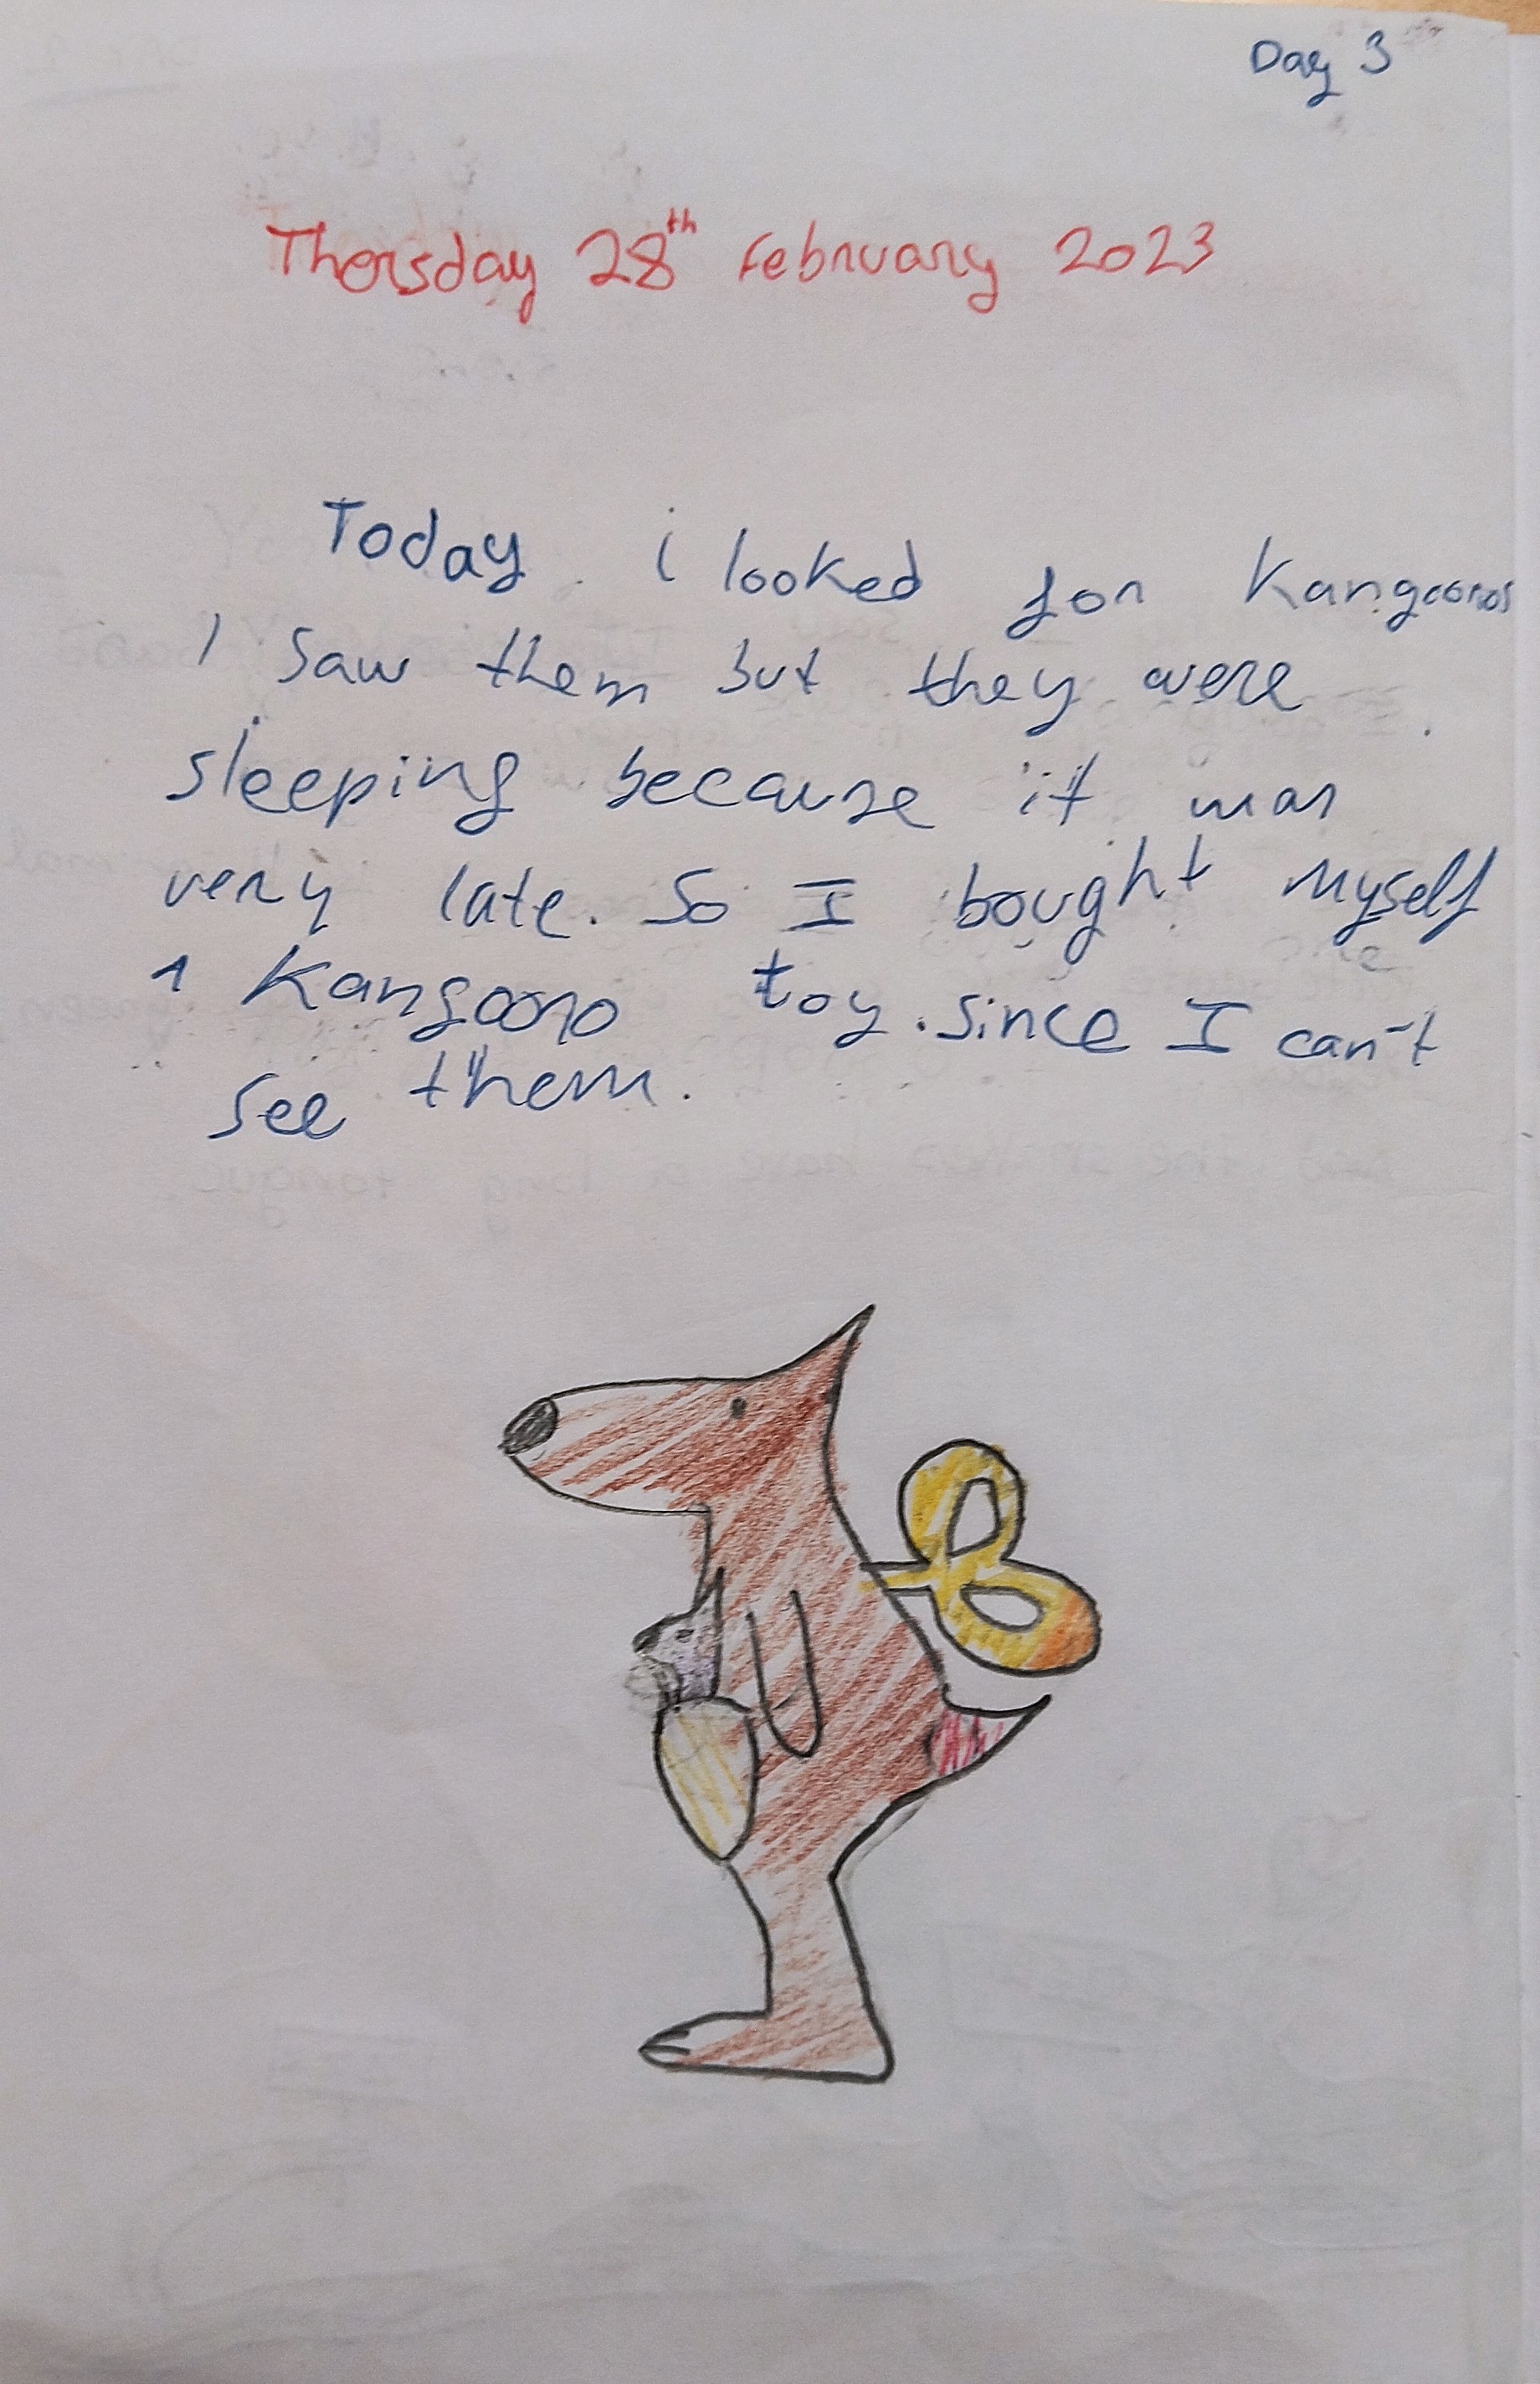 Day 3
Thorsday 28th February 2023
Today i looked for Kangooros
I saw them but they were
sleeping because it was
very late. So I bought Myself
1 Kangooro toy. Since I can't
see them.